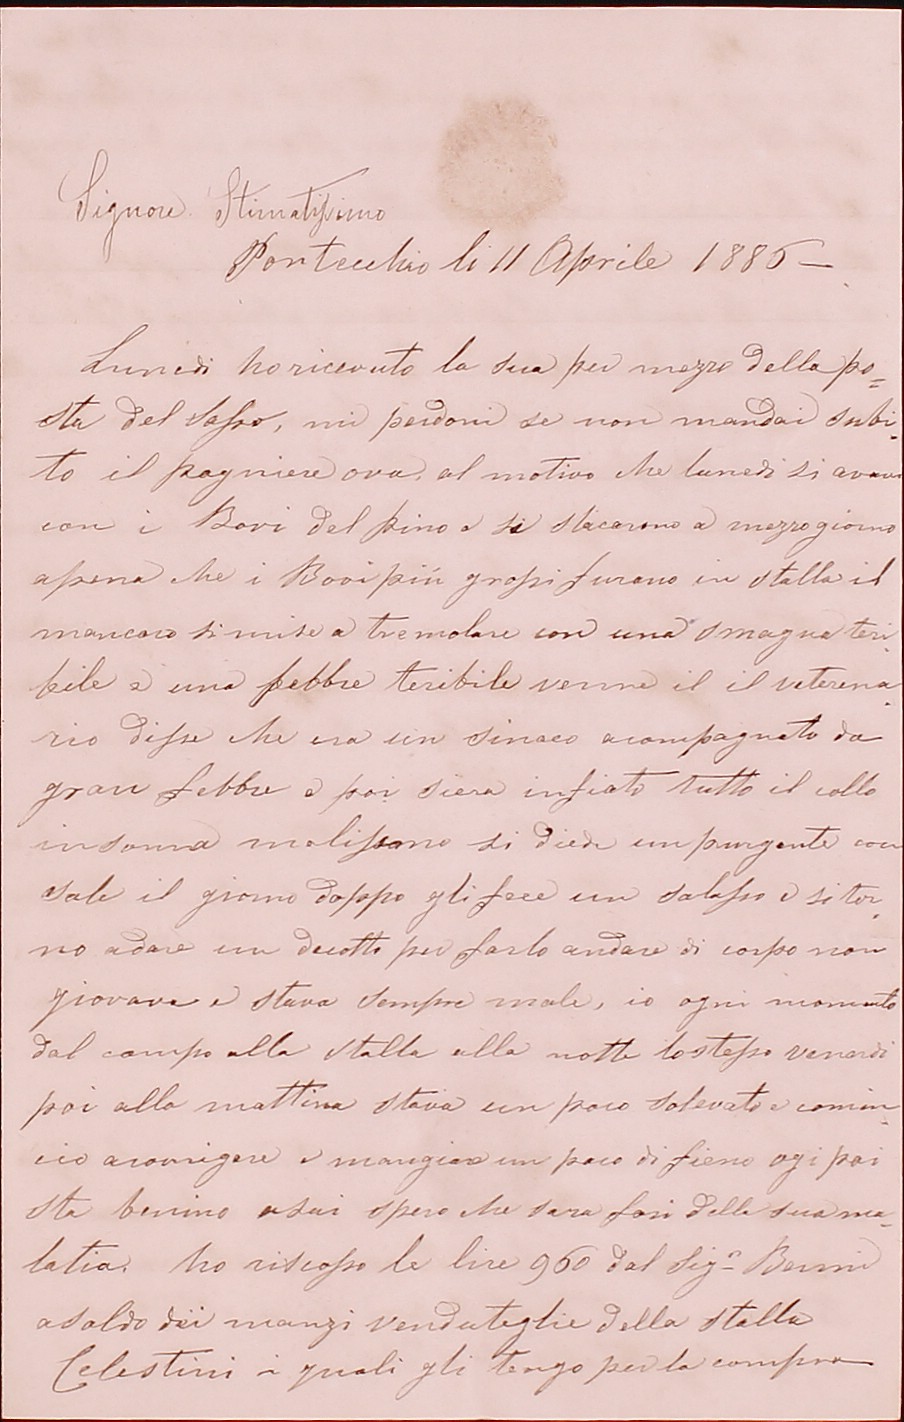 Signore Stimatissimo
Pontecchio li 11 Aprile 1886 —
Lunedi ho ricevuto la sua per mezzo della po=
sta del Sasso, mi perdoni se non mandai subi-
to il pagniere ova, al motivo che lunedi si arava
con i Bovi del pino e si stacarono a mezzogiorno
apena che i Bovi più grossi furano in stalla il
mancino si mise a tremolare con una smagna teri-
bile e una febbre teribile venne il il veterena-
rio disse che era un sinaco acompagnato da
gran febbre e poi siera infiato tutto il collo
insoma malissimo si diede un purgante con
sale il giorno doppo gli fece un salasso e si tor-
no adare un decotto per farlo andare di corpo non
giovava e stava sempre male, io ogni momento
dal campo alla stalla alla notte lostesso venerdi
poi alla mattina stava un poco solevato e comin-
cio arorrigere e mangiare un poco di fieno ogi poi
sta benino asai spero che sara fori della sua ma-
latia. ho riscosso le lire 960 dal Sigr Benni
asaldo dei manzi venduteglie della stalla
Celestini i quali gli tengo per la compra